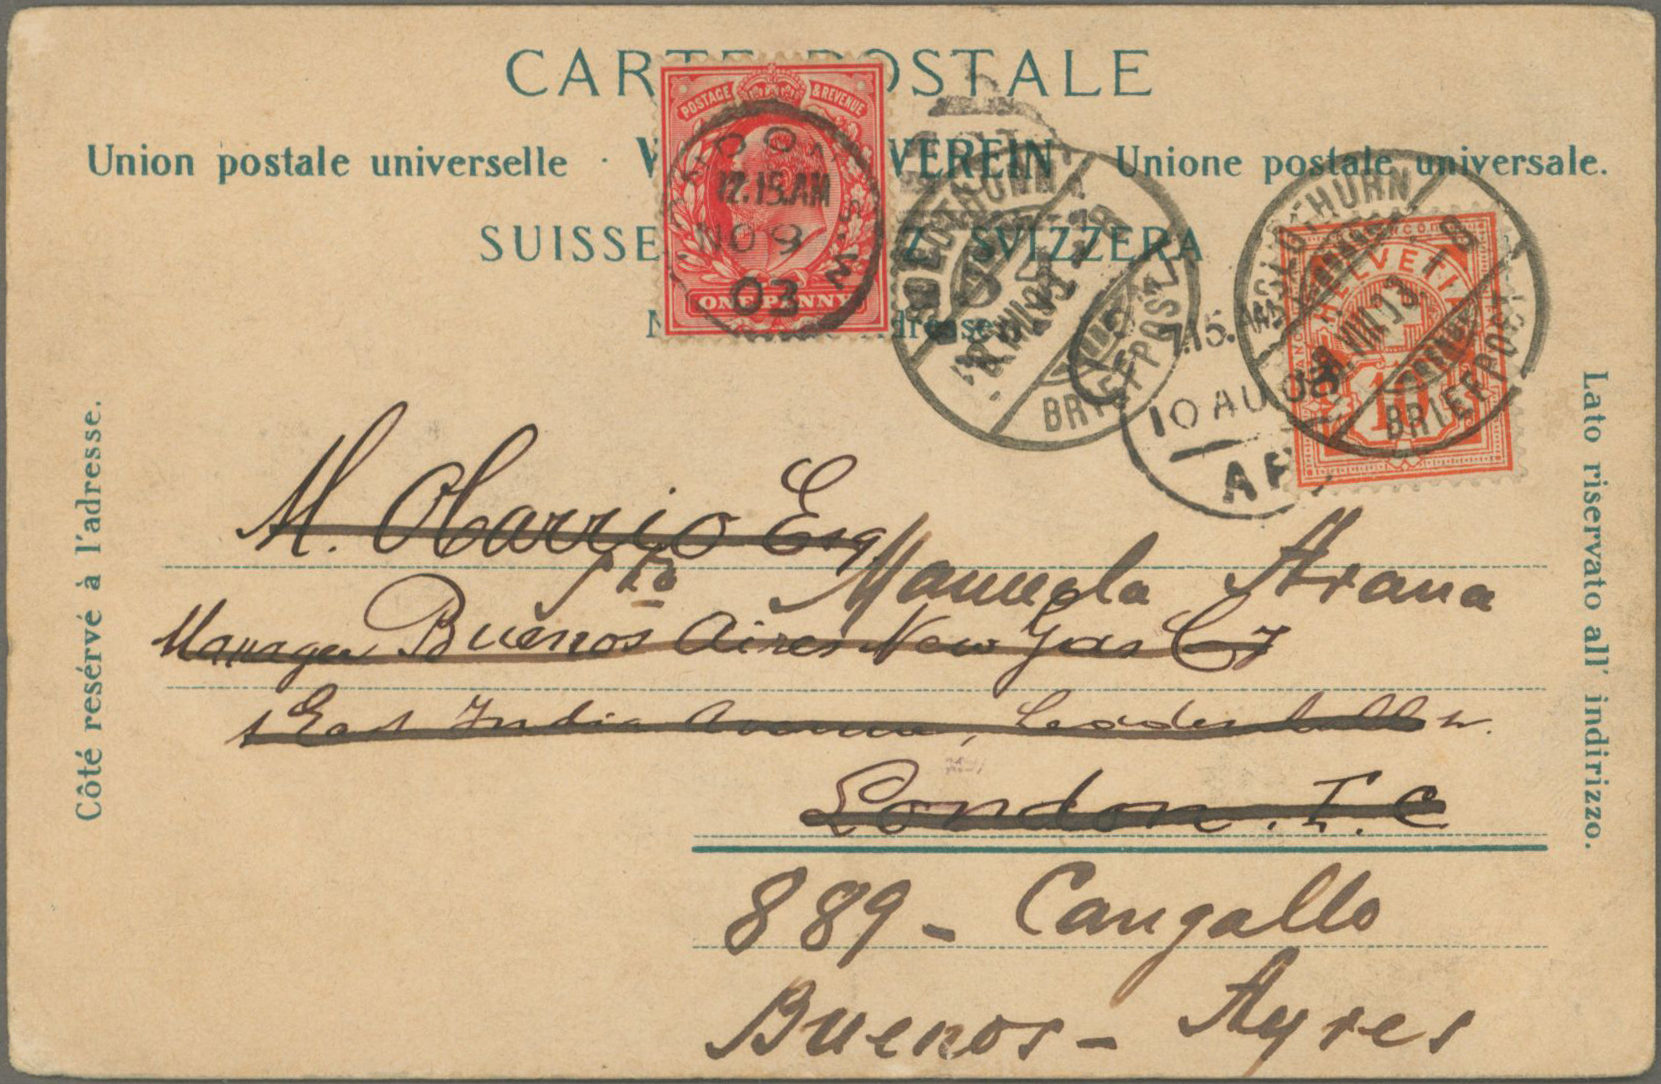 CARTE POSTALE
Union postale universelle · VEREIN Unione postale universale.
SUISSE SVIZZERA
POSTAGE & REVENUE
12.15.AM
NO 9
03
ONE PENNY
SOLOTHURN
BRIEFPOST
SOLOTHURN
BRIEFPOST
HELVETIA
10
7.15.
10 AU 03
Côté resérvé à l'adresse.
Lato riservato all' indirizzo.
M. Obarrio Esq
Sta Manuela Arana
Manager Buenos Aires New Gas Co
1 East India Avenue, Leadenhall St.
London. E. C
889 - Cangallo
Buenos - Ayres